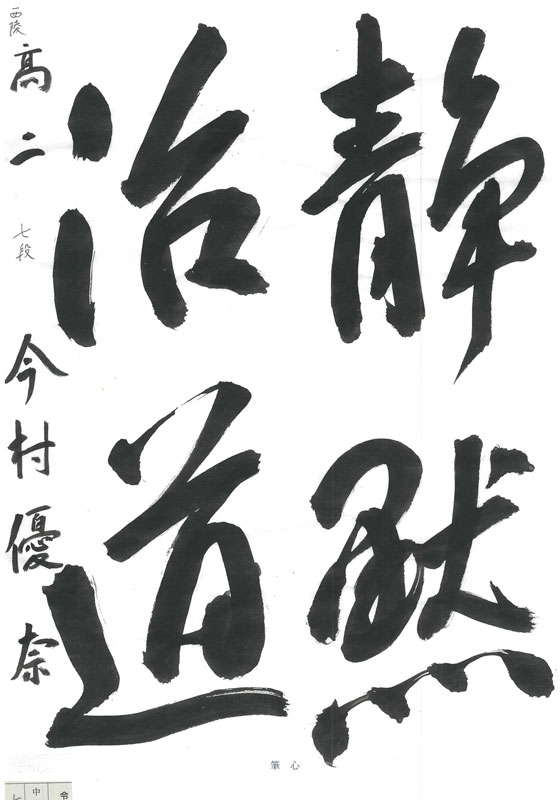 静黙
治道
西陵 高二 七段 今村優奈
筆心
中
令